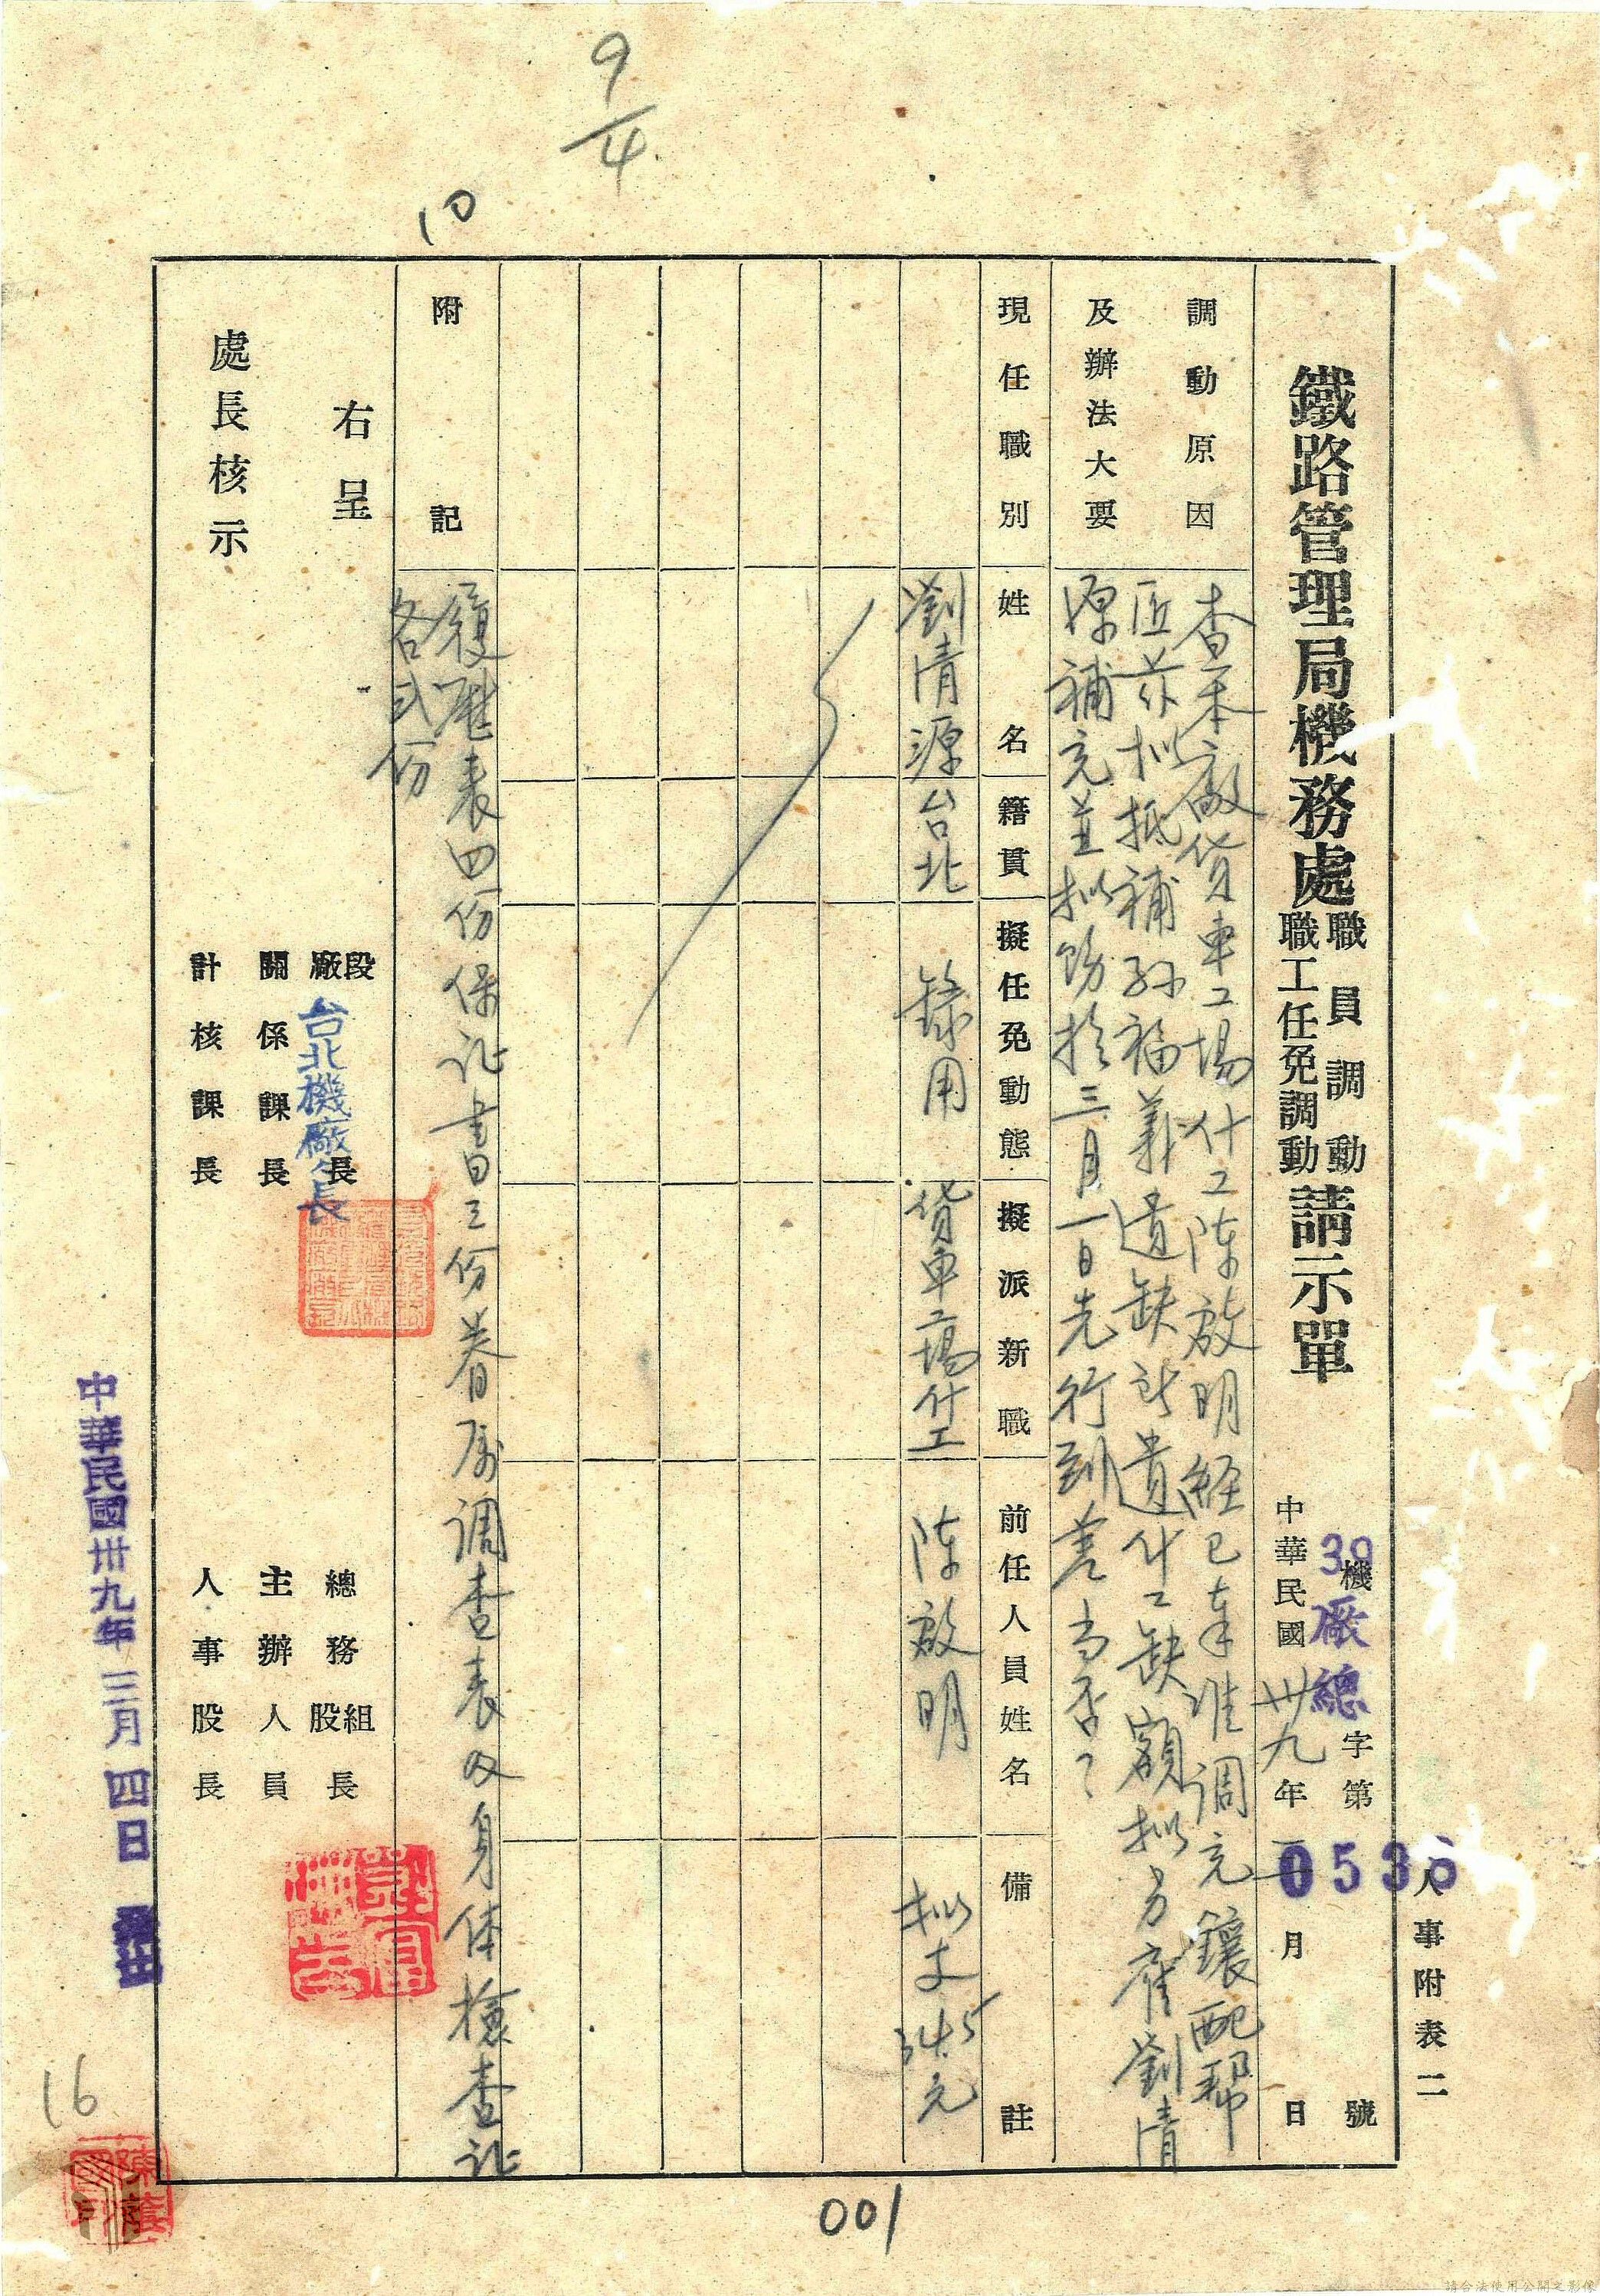 9/4
10
人事附表二
鐵路管理局機務處職員調動職工任免調動請示單
39機廠總字第0536號
中華民國卅九年 月 日
調動原因
及辦法大要
查本廠貨車工場什工陳啟明經已奉准調充鑲配幫
匠茲擬抵補孫福義遺缺所遺什工缺額擬另雇劉清
源補充並擬飭於三月一日先行到差當否?
現任職別 姓名 籍貫 擬任免動態 擬派新職 前任人員姓名 備註
劉清源 台北 錄用 貨車工場什工 陳啟明 擬支34.5元
附記
履歷表四份保証書三份眷屬調查表及身体檢查証
各弍份
右呈
處長核示
廠段長 台北機廠長
關係課長
計核課長
總務組股長
主辦人員
人事股長
中華民國卅九年三月四日
16
001
請合法使用公開之影像